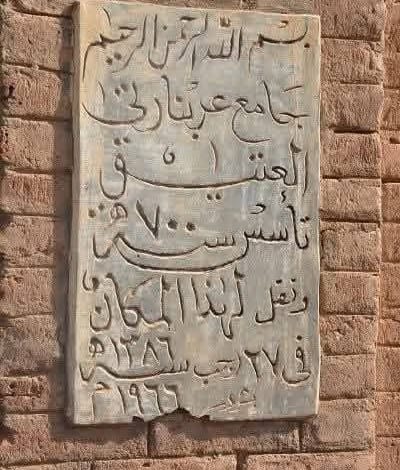 بسم الله الرحمن الرحيم
جامع
العتيق
تأسس سنة ٧٠٠ هـ
ونقل لهذا المكان
في ٢٧ رجب سنة ١٣٨٦ هـ
١٩٦٦ م